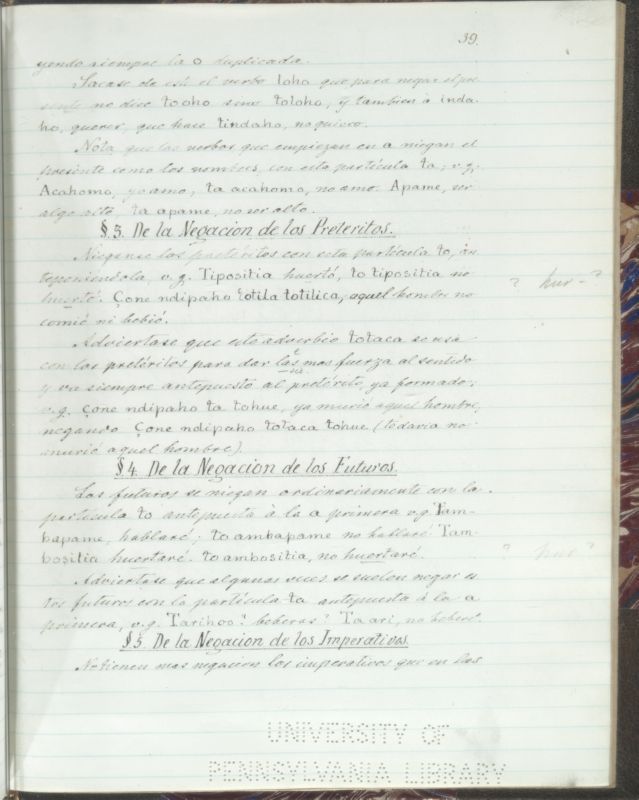 39.
yendo siempre la o duplicada.
Sacase de esto el verbo loho que para negar el pre
sente no dice tooho sino toloho, y tambien à inda-
ho, querer, que hace tindaho, no quiero.
Nota que los verbos que empiezan en a niegan el
presente como los nombres, con esta partícula ta; v.g.
Acahomo, yo amo, ta acahomo, no amo. Apame, ser
algo alto, ta apame, no ser alto.
§. 3. De la Negacion de los Preteritos.
Nieganse los pretéritos con esta partícula to, an
teponiendola, v.g. Tipositia huertó, to tipositia no
huertó. Çone ndipaho totila totilica, aquel hombre no
comió ni bebió.
? hur - ?
Adviertase que este adverbio totaca se usa
con los pretéritos para dar las mas fuerza al sentido
y va siempre antepuesto al pretérito, ya formado;
v.g. Çone ndipaho ta tohue, ya murió aquel hombre,
negando Çone ndipaho totaca tohue (todavia no
murió aquel hombre).
§ 4. De la Negacion de los Futuros.
Los futuros se niegan ordinariamente con la
partícula to antepuesta à la a primera v.g. Tam-
bapame, hablaré; to ambapame no hablaré Tam-
bositia huertaré. to ambositia, no huertaré.
? hur ?
Adviertase que algunas veces se suelen negar es
tos futuros con la partícula ta antepuesta à la a
primera, v.g. Tarihoo? beberas? Taari, no beberé.
§ 5. De la Negacion de los Imperativos.
No tienen mas negacion los imperativos que en las
UNIVERSITY OF
PENNSYLVANIA LIBRARY